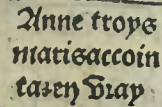 Anne troys
marisaccoin
tazen Vray